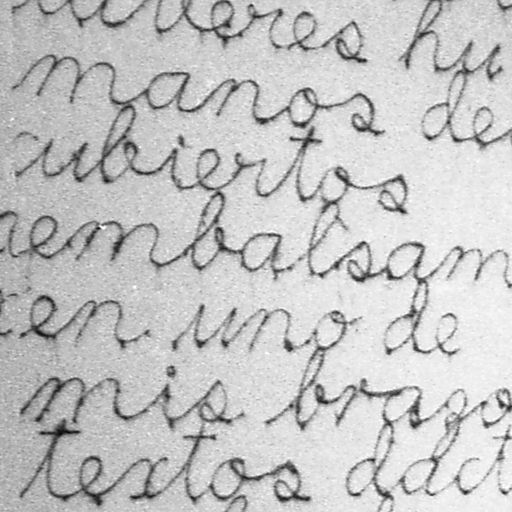 hu
manos de
ubiertos
embalsam
en uno de
mis brazo
textos dact